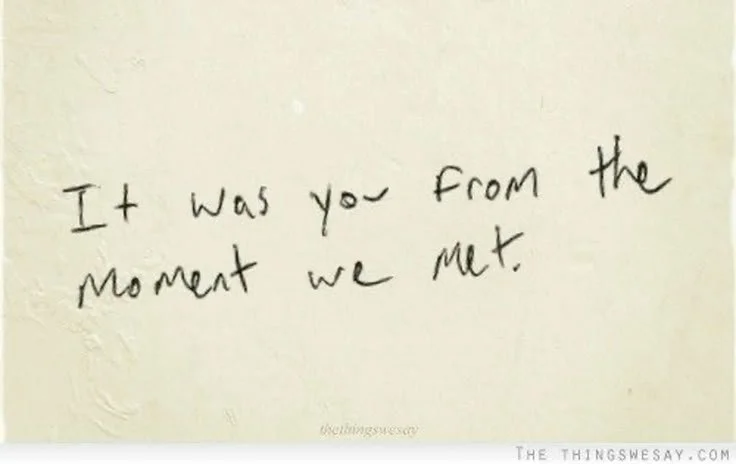 It was you from the
moment we met.
thethingswesay
THE THINGSWESAY.COM